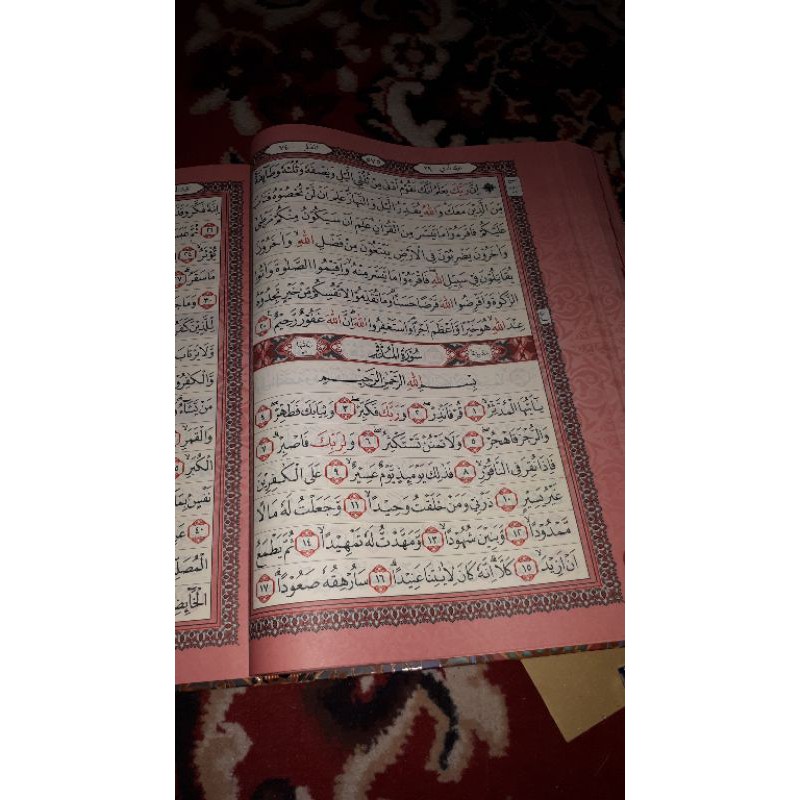 ٥٧٥
اِنَّ رَبَّكَ يَعْلَمُ اَنَّكَ تَقُوْمُ اَدْنٰى مِنْ ثُلُثَيِ الَّيْلِ وَنِصْفَهٗ وَثُلُثَهٗ وَطَاۤىِٕفَةٌ
مِّنَ الَّذِيْنَ مَعَكَ وَاللّٰهُ يُقَدِّرُ الَّيْلَ وَالنَّهَارَ عَلِمَ اَنْ لَّنْ تُحْصُوْهُ فَتَابَ
عَلَيْكُمْ فَاقْرَءُوْا مَا تَيَسَّرَ مِنَ الْقُرْاٰنِ عَلِمَ اَنْ سَيَكُوْنُ مِنْكُمْ مَّرْضٰى
وَاٰخَرُوْنَ يَضْرِبُوْنَ فِى الْاَرْضِ يَبْتَغُوْنَ مِنْ فَضْلِ اللّٰهِ وَاٰخَرُوْنَ
يُقَاتِلُوْنَ فِيْ سَبِيْلِ اللّٰهِ فَاقْرَءُوْا مَا تَيَسَّرَ مِنْهُ وَاَقِيْمُوا الصَّلٰوةَ وَاٰتُوا
الزَّكٰوةَ وَاَقْرِضُوا اللّٰهَ قَرْضًا حَسَنًا وَمَا تُقَدِّمُوْا لِاَنْفُسِكُمْ مِّنْ خَيْرٍ تَجِدُوْهُ
عِنْدَ اللّٰهِ هُوَ خَيْرًا وَّاَعْظَمَ اَجْرًا وَاسْتَغْفِرُوا اللّٰهَ اِنَّ اللّٰهَ غَفُوْرٌ رَّحِيْمٌ ٢٠
سُوْرَةُ الْمُدَّثِّرِ
بِسْمِ اللّٰهِ الرَّحْمٰنِ الرَّحِيْمِ
يٰٓاَيُّهَا الْمُدَّثِّرُ ١ قُمْ فَاَنْذِرْ ٢ وَرَبَّكَ فَكَبِّرْ ٣ وَثِيَابَكَ فَطَهِّرْ ٤
وَالرُّجْزَ فَاهْجُرْ ٥ وَلَا تَمْنُنْ تَسْتَكْثِرُ ٦ وَلِرَبِّكَ فَاصْبِرْ ٧
فَاِذَا نُقِرَ فِى النَّاقُوْرِ ٨ فَذٰلِكَ يَوْمَىِٕذٍ يَّوْمٌ عَسِيْرٌ ٩ عَلَى الْكٰفِرِيْنَ
غَيْرُ يَسِيْرٍ ١٠ ذَرْنِيْ وَمَنْ خَلَقْتُ وَحِيْدًا ١١ وَّجَعَلْتُ لَهٗ مَالًا
مَّمْدُوْدًا ١٢ وَّبَنِيْنَ شُهُوْدًا ١٣ وَّمَهَّدْتُّ لَهٗ تَمْهِيْدًا ١٤ ثُمَّ يَطْمَعُ
اَنْ اَزِيْدَ ١٥ كَلَّا اِنَّهٗ كَانَ لِاٰيٰتِنَا عَنِيْدًا ١٦ سَاُرْهِقُهٗ صَعُوْدًا ١٧